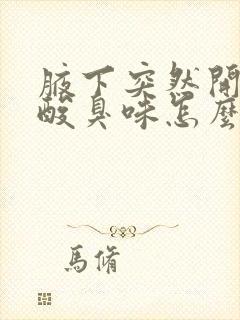 腋下突然開
酸臭味怎麼
馬脩